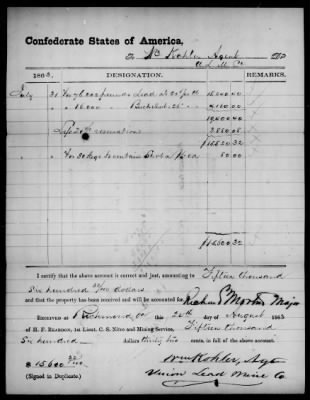 Confederate States of America,
To Wm Kohler Agent Dr.
U. L. M. Co
1863. DESIGNATION. REMARKS.
July 31 For 76.002 pounds Lead at 20¢ pr lb
" 16.000 " Buckshot " 26¢ "
Less 20% reservation
For 30 kegs to contain Shot
$15,600.32
I certify that the above account is correct and just, amounting to Fifteen thousand
Six hundred 32/100 dollars
and that the property has been received and will be accounted for Richard Morton Major
RECEIVED at Richmond Va this 26th day of August 1863
of H. F. REARDON, 1st Lieut. C. S. Nitre and Mining Service, Fifteen thousand
Six hundred dollars thirty two cents, in full of the above account.
$ 15.600 32/100 Wm Kohler, Agt
(Signed in Duplicate.) Union Lead Mine Co.